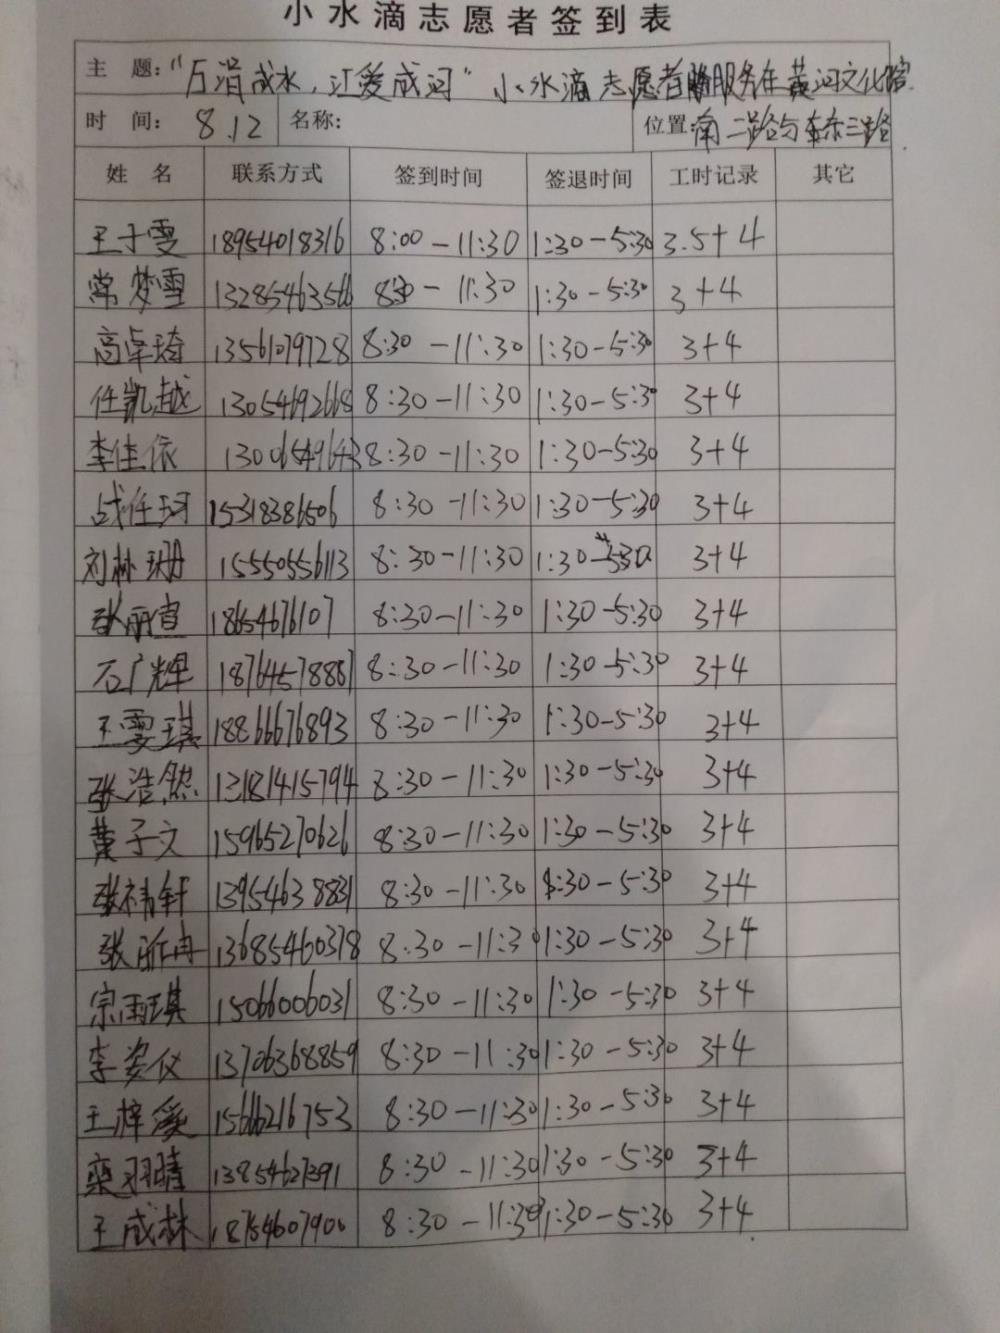 小水滴志愿者签到表
主 题：“万涓成水，汇爱成河”小水滴志愿者服务在黄河文化馆
时 间：8.12 名称： 位置：南二路与东三路
姓 名 联系方式 签到时间 签退时间 工时记录 其它
王子雯 18954018316 8:00-11:30 1:30-5:30 3.5+4
常梦雪 8:30- 11:30 1:30-5:30 3+4
高卓琦 13561079728 8:30 -11:30 1:30-5:30 3+4
任凯越 13054692668 8:30-11:30 1:30-5:30 3+4
李佳依 13006549643 8:30-11:30 1:30-5:30 3+4
战任珂 15318386506 8:30-11:30 1:30-5:30 3+4
刘林珊 15550556113 8:30-11:30 1:30-5:30 3+4
张丽宣 18654676107 8:30-11:30 1:30-5:30 3+4
石广辉 18764578887 8:30-11:30 1:30-5:30 3+4
王雯琪 18866676893 8:30-11:30 1:30-5:30 3+4
张浩然 13181415794 8:30-11:30 1:30-5:30 3+4
董子文 15965270626 8:30-11:30 1:30-5:30 3+4
张祎轩 13954638831 8:30-11:30 1:30-5:30 3+4
张昕冉 13685460378 8:30-11:30 1:30-5:30 3+4
宗雨琪 15066006031 8:30-11:30 1:30-5:30 3+4
李姿仪 13706368859 8:30-11:30 1:30-5:30 3+4
王梓溪 15666216753 8:30-11:30 1:30-5:30 3+4
栾羽晴 13854627391 8:30-11:30 1:30-5:30 3+4
王成林 18754607900 8:30-11:30 1:30-5:30 3+4